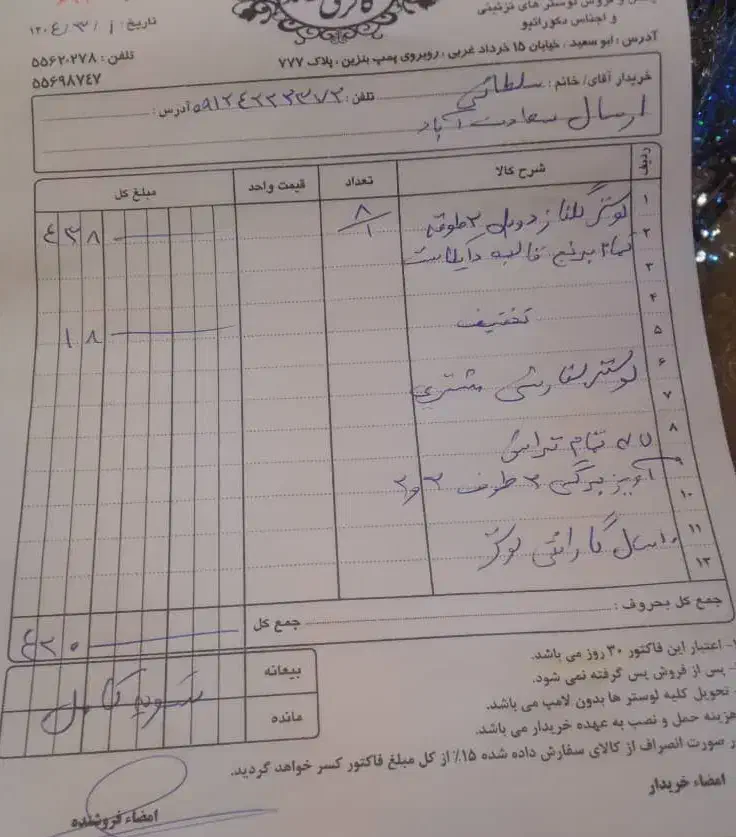 و فروش لوستر های تزئینی
و اجناس دکوراتیو
گالری
تاریخ: ۱ / ۳ / ۱۴۰۴
تلفن: ۵۵۶۲۰۲۷۸
۵۵۶۹۸۷۴۷
آدرس: ابوسعید، خیابان ۱۵ خرداد غربی، روبروی پمپ بنزین، پلاک ۷۷۷
خریدار آقای/ خانم: سلطانی تلفن: آدرس:
ارسال سعادت آباد
ردیف شرح کالا تعداد قیمت واحد مبلغ کل
۱ لوستر دوبل ۳ طوقه ۸/۱ ۴۳۸
۲ تمام برنج
۳
۴ تخفیف ۱۸
۵
۶ لوستر سفارشی مشتری
۷
۸ تمام تراش
۹ آویز برگی
۱۰
۱۱ ۱۰ سال گارانتی لوکز
۱۲
جمع کل بحروف:
جمع کل ۴۲۰
بیعانه
تسویه کامل
مانده
- اعتبار این فاکتور ۳۰ روز می باشد.
- پس از فروش پس گرفته نمی شود.
- تحویل کلیه لوستر ها بدون لامپ می باشد.
هزینه حمل و نصب به عهده خریدار می باشد.
در صورت انصراف از کالای سفارش داده شده ۱۵٪ از کل مبلغ فاکتور کسر خواهد گردید.
امضاء خریدار
امضاء فروشنده